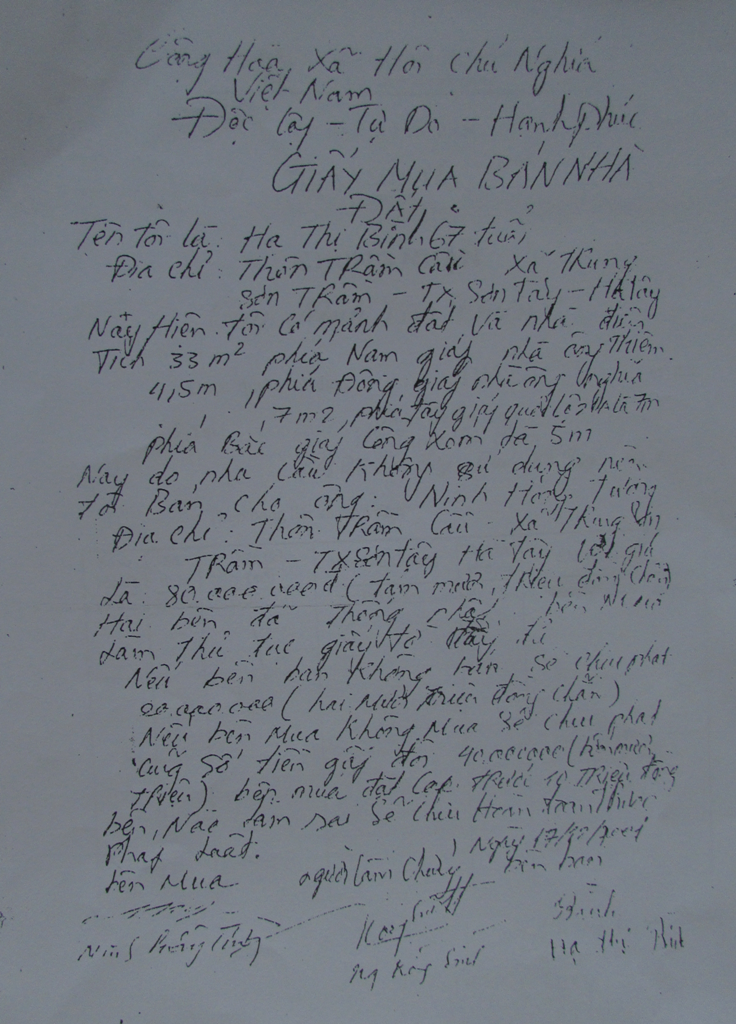 Cộng Hoà Xã Hội Chủ Nghĩa
Việt Nam
Độc lập - Tự Do - Hạnh phúc
GIẤY MUA BÁN NHÀ
ĐẤT
Tên tôi là: Hạ Thị Bình 67 tuổi
Địa chỉ: Thôn TRầm Cầu Xã Trung
Sơn TRầm - TX Sơn Tây - Hà Tây
Nay Hiện tôi có mảnh đất và nhà diện
Tích 33 m2 phía Nam giáp nhà ông Thiêm
4,5m, phía Đông giáp nhà ông nghĩa
7m2, phía tây giáp là 7m
phía Bắc giáp Cổng xóm là 5m
Nay do nhu cầu không sử dụng nên
tôi Bán cho ông: Ninh Hồng Tường
Địa chỉ: Thôn TRầm Cầu Xã Trung Sơn
TRầm - TX Sơn tây Hà Tây với giá
Là: 80.000.000đ (tám mươi triệu đồng chẵn)
Hai bên đã thống nhất bên
Làm thủ tục giấy tờ đầy đủ
Nếu bên bán không bán sẽ chịu phạt
20.000.000 (hai mươi triệu đồng chẵn)
Nếu bên Mua không Mua sẽ chịu phạt
số tiền gấp đôi 40.000.000 (bốn mươi
triệu) bên mua đặt cọc trước 10 triệu đồng
bên Nào làm sai sẽ chịu Hoàn toàn trước
Pháp Luật.
Ngày 17/
bên Mua người làm chứng bên bán
Bình
Ninh Hạ Thị Bình